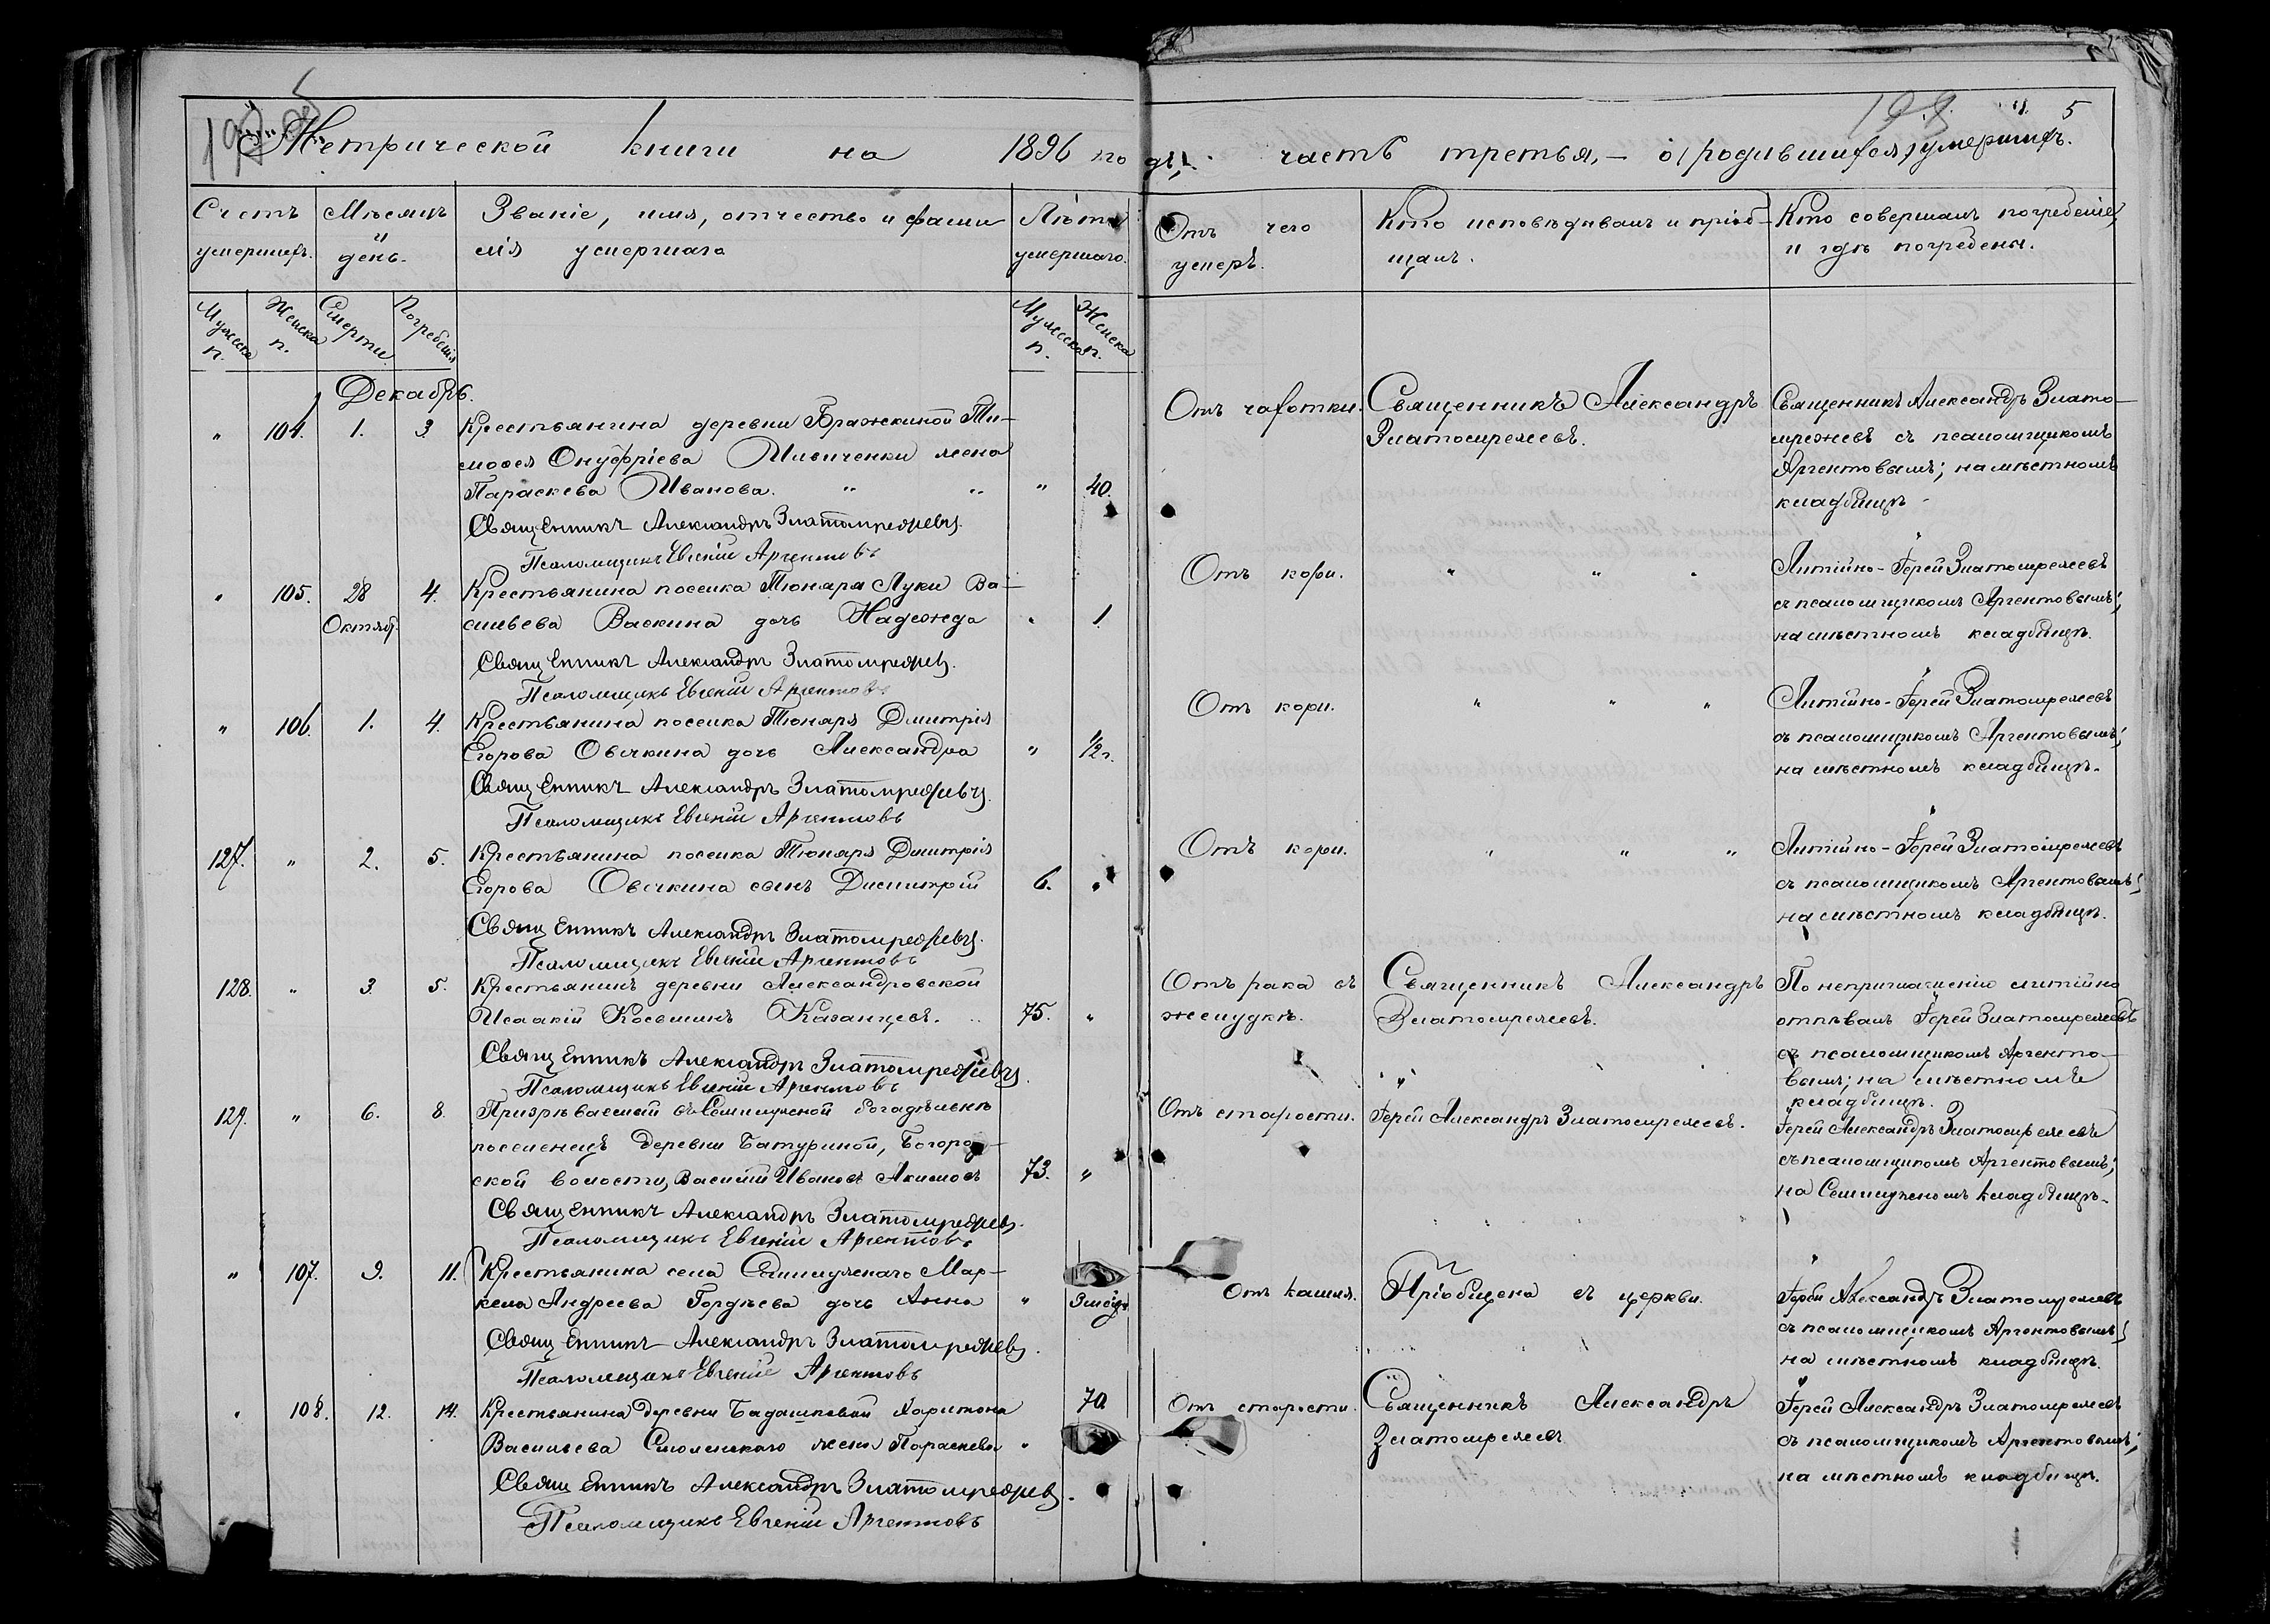 Метрической книги на 1896 го
Счетъ умершихъ.
Мѣсяцъ и день.
Званіе, имя, отчество и фами
лія умершаго
Лѣта умершаго.
Мужеска п.
Женска п.
Смерти.
Погребенія
Мужеска п.
Женска п.
Декабрь.
" 104. 1. 3. Крестьянина деревни Бражкиной Ти-
моѳея Онуфріева Ильиченки жена
Параскева Иванова. " " " 40.
Священникъ Александръ Златомрежевъ.
Псаломщикъ Евгеній Аргентовъ
" 105. 28 4. Крестьянина поселка Тюняря Луки Ва-
Октяб. сильева Васкина дочь Надежда " 1
Священникъ Александръ Златомрежевъ.
Псаломщикъ Евгеній Аргентовъ
" 106. 1. 4. Крестьянина поселка Тюняря Дмитрія
Егорова Овечкина дочь Александра " 1/2 г.
Священникъ Александръ Златомрежевъ.
Псаломщикъ Евгеній Аргентовъ
127. " 2. 5. Крестьянина поселка Тюняря Димитрія
Егорова Овечкина сынъ Димитрій 6. "
Священникъ Александръ Златомрежевъ.
Псаломщикъ Евгеній Аргентовъ
128. " 3. 5. Крестьянинъ деревни Александровской
Исаакій Косьминъ Казанцевъ. 75. "
Священникъ Александръ Златомрежевъ.
Псаломщикъ Евгеній Аргентовъ
129. " 6. 8. Призрѣваемый въ Семилужной богадѣльнѣ
поселенецъ деревни Батуриной, Богород-
ской волости, Василій Ивановъ Акимовъ 73. "
Священникъ Александръ Златомрежевъ.
Псаломщикъ Евгеній Аргентовъ
" 107. 9. 11. Крестьянина села Семилужнаго Мар-
кела Андреева Гордѣева дочь Анна "
Священникъ Александръ Златомрежевъ.
Псаломщикъ Евгеній Аргентовъ
" 108. 12. 14. Крестьянина деревни Бадашковой Харитона 70
Васильева Смоленскаго жена Параскева "
Священникъ Александръ Златомрежевъ.
Псаломщикъ Евгеній Аргентовъ
5
дъ, часть третья, — о (родившихся) умершихъ.
Отъ чего умеръ.
Кто исповѣдывалъ и пріоб-
щалъ.
Кто совершалъ погребеніе,
и гдѣ погребены.
Отъ чахотки.
Священникъ Александръ
Златомрежевъ.
Священникъ Александръ Злато-
мрежевъ съ псаломщикомъ
Аргентовымъ; на мѣстномъ
кладбищѣ.
Отъ кори. " " "
Литійно-Іерей Златомрежевъ
съ псаломщикомъ Аргентовымъ;
на мѣстномъ кладбищѣ.
Отъ кори. " " "
Литійно-Іерей Златомрежевъ
съ псаломщикомъ Аргентовымъ;
на мѣстномъ кладбищѣ.
Отъ кори. " " "
Литійно-Іерей Златомрежевъ
съ псаломщикомъ Аргентовымъ;
на мѣстномъ кладбищѣ.
Отъ рака въ
желудкѣ.
Священникъ Александръ
Златомрежевъ.
По неприглашенію литійно
отпѣвалъ Іерей Златомрежевъ
съ псаломщикомъ Аргенто-
вымъ; на мѣстномъ
кладбищѣ.
Отъ старости. Іерей Александръ Златомрежевъ.
Іерей Александръ Златомрежевъ
съ псаломщикомъ Аргентовымъ;
на Семилужномъ кладбищѣ.
Отъ кашля. Пріобщена въ церкви.
Іерей Александръ Златомрежевъ
съ псаломщикомъ Аргентовымъ;
на мѣстномъ кладбищѣ.
Отъ старости.
Священникъ Александръ
Златомрежевъ
Іерей Александръ Златомрежевъ
съ псаломщикомъ Аргентовымъ;
на мѣстномъ кладбищѣ.